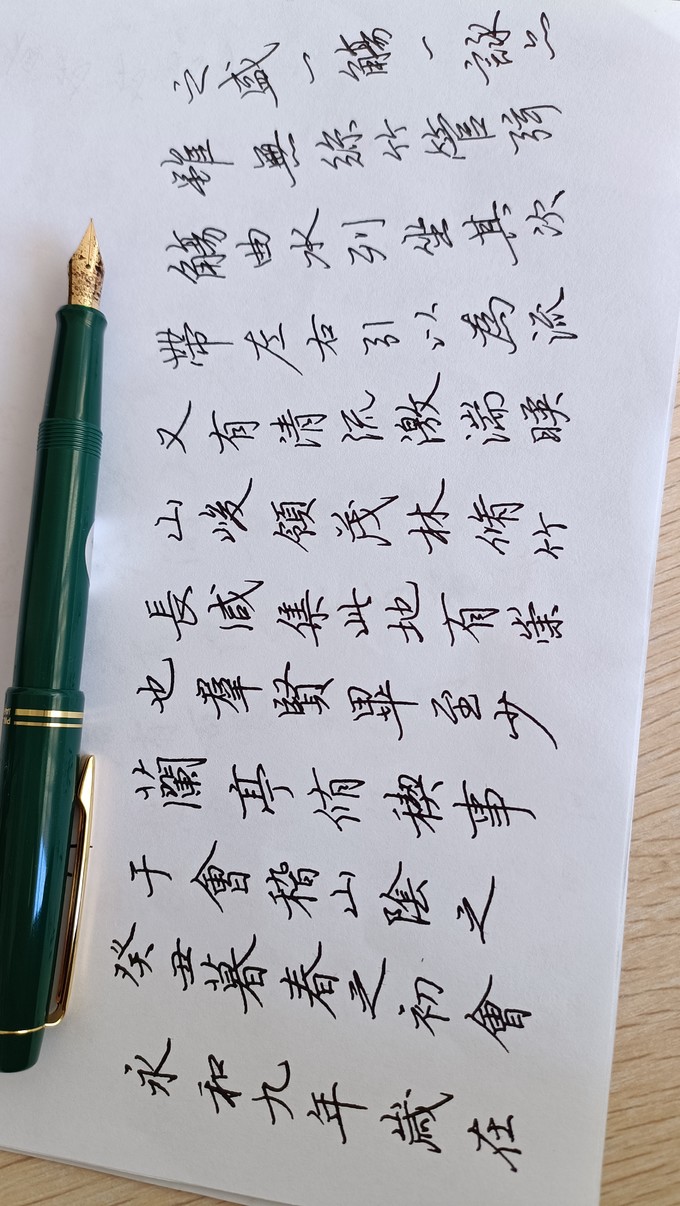 永和九年歲在
癸丑暮春之初會
于會稽山陰之
蘭亭脩稧事
也羣賢畢至少
長咸集此地有崇
山峻領茂林脩竹
又有清流激湍暎
帶左右引以為流
觴曲水列坐其次
雖無絲竹管弦
之盛一觴一詠亦